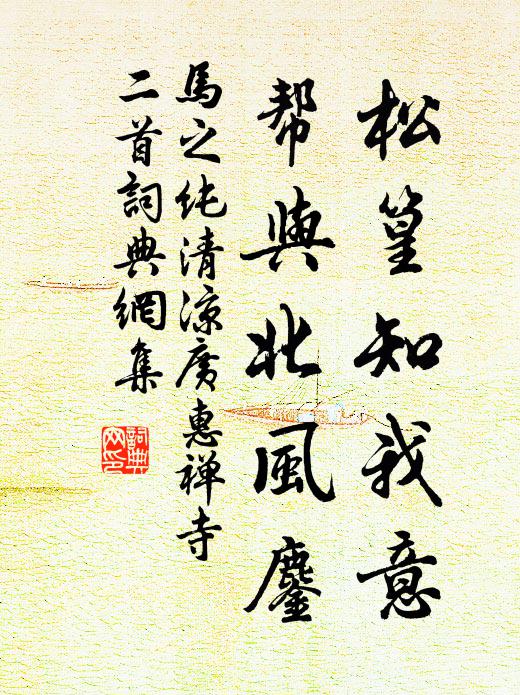 松篁知我意
帮與北風鏖
馬之純清涼廣惠禅寺
二首詞典網集
詞典
网印